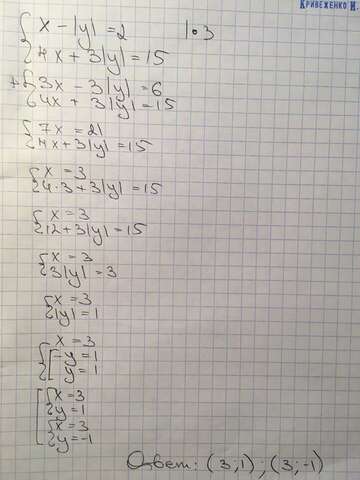 Кривеженко И.
{ x - |y| = 2 | • 3
4x + 3|y| = 15
+ { 3x - 3|y| = 6
4x + 3|y| = 15
{ 7x = 21
4x + 3|y| = 15
{ x = 3
4·3 + 3|y| = 15
{ x = 3
12 + 3|y| = 15
{ x = 3
3|y| = 3
{ x = 3
|y| = 1
{ x = 3
[ -y = 1
y = 1
[ { x = 3
y = 1
{ x = 3
y = -1
Ответ: (3;1); (3;-1)